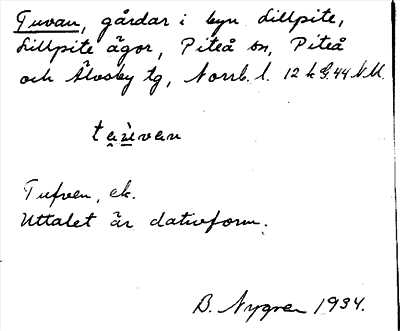 Tuvan, gårdar i byn Lillpite,
Lillpite ägor, Piteå sn, Piteå
och Älvsby tg, Norrb. l. 12 k G. 44 N.M.
tạùvan
Tufven, ek.
Uttalet är dativform.
B. Nygren 1934.